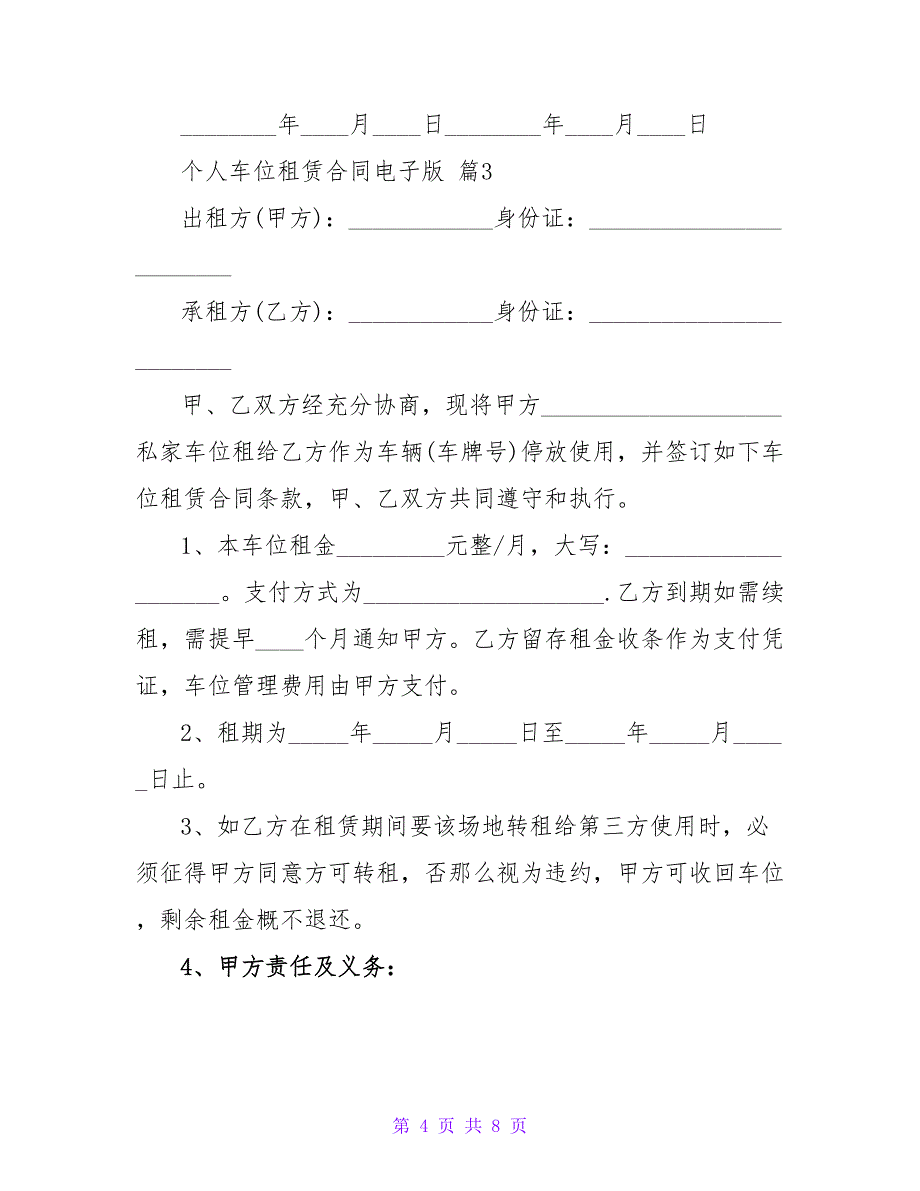 ________年____月____日________年____月____日
个人车位租赁合同电子版 篇3
出租方(甲方)：____________身份证：________________
________
承租方(乙方)：____________身份证：________________
________
甲、乙双方经充分协商，现将甲方____________________
私家车位租给乙方作为车辆(车牌号)停放使用，并签订如下车
位租赁合同条款，甲、乙双方共同遵守和执行。
1、本车位租金_________元整/月，大写：_____________
_______。支付方式为____________________.乙方到期如需续
租，需提早____个月通知甲方。乙方留存租金收条作为支付凭
证，车位管理费用由甲方支付。
2、租期为_____年_____月_____日至_____年_____月____
_日止。
3、如乙方在租赁期间要该场地转租给第三方使用时，必
须征得甲方同意方可转租，否那么视为违约，甲方可收回车位
，剩余租金概不退还。
4、甲方责任及义务：
第 4 页 共 8 页